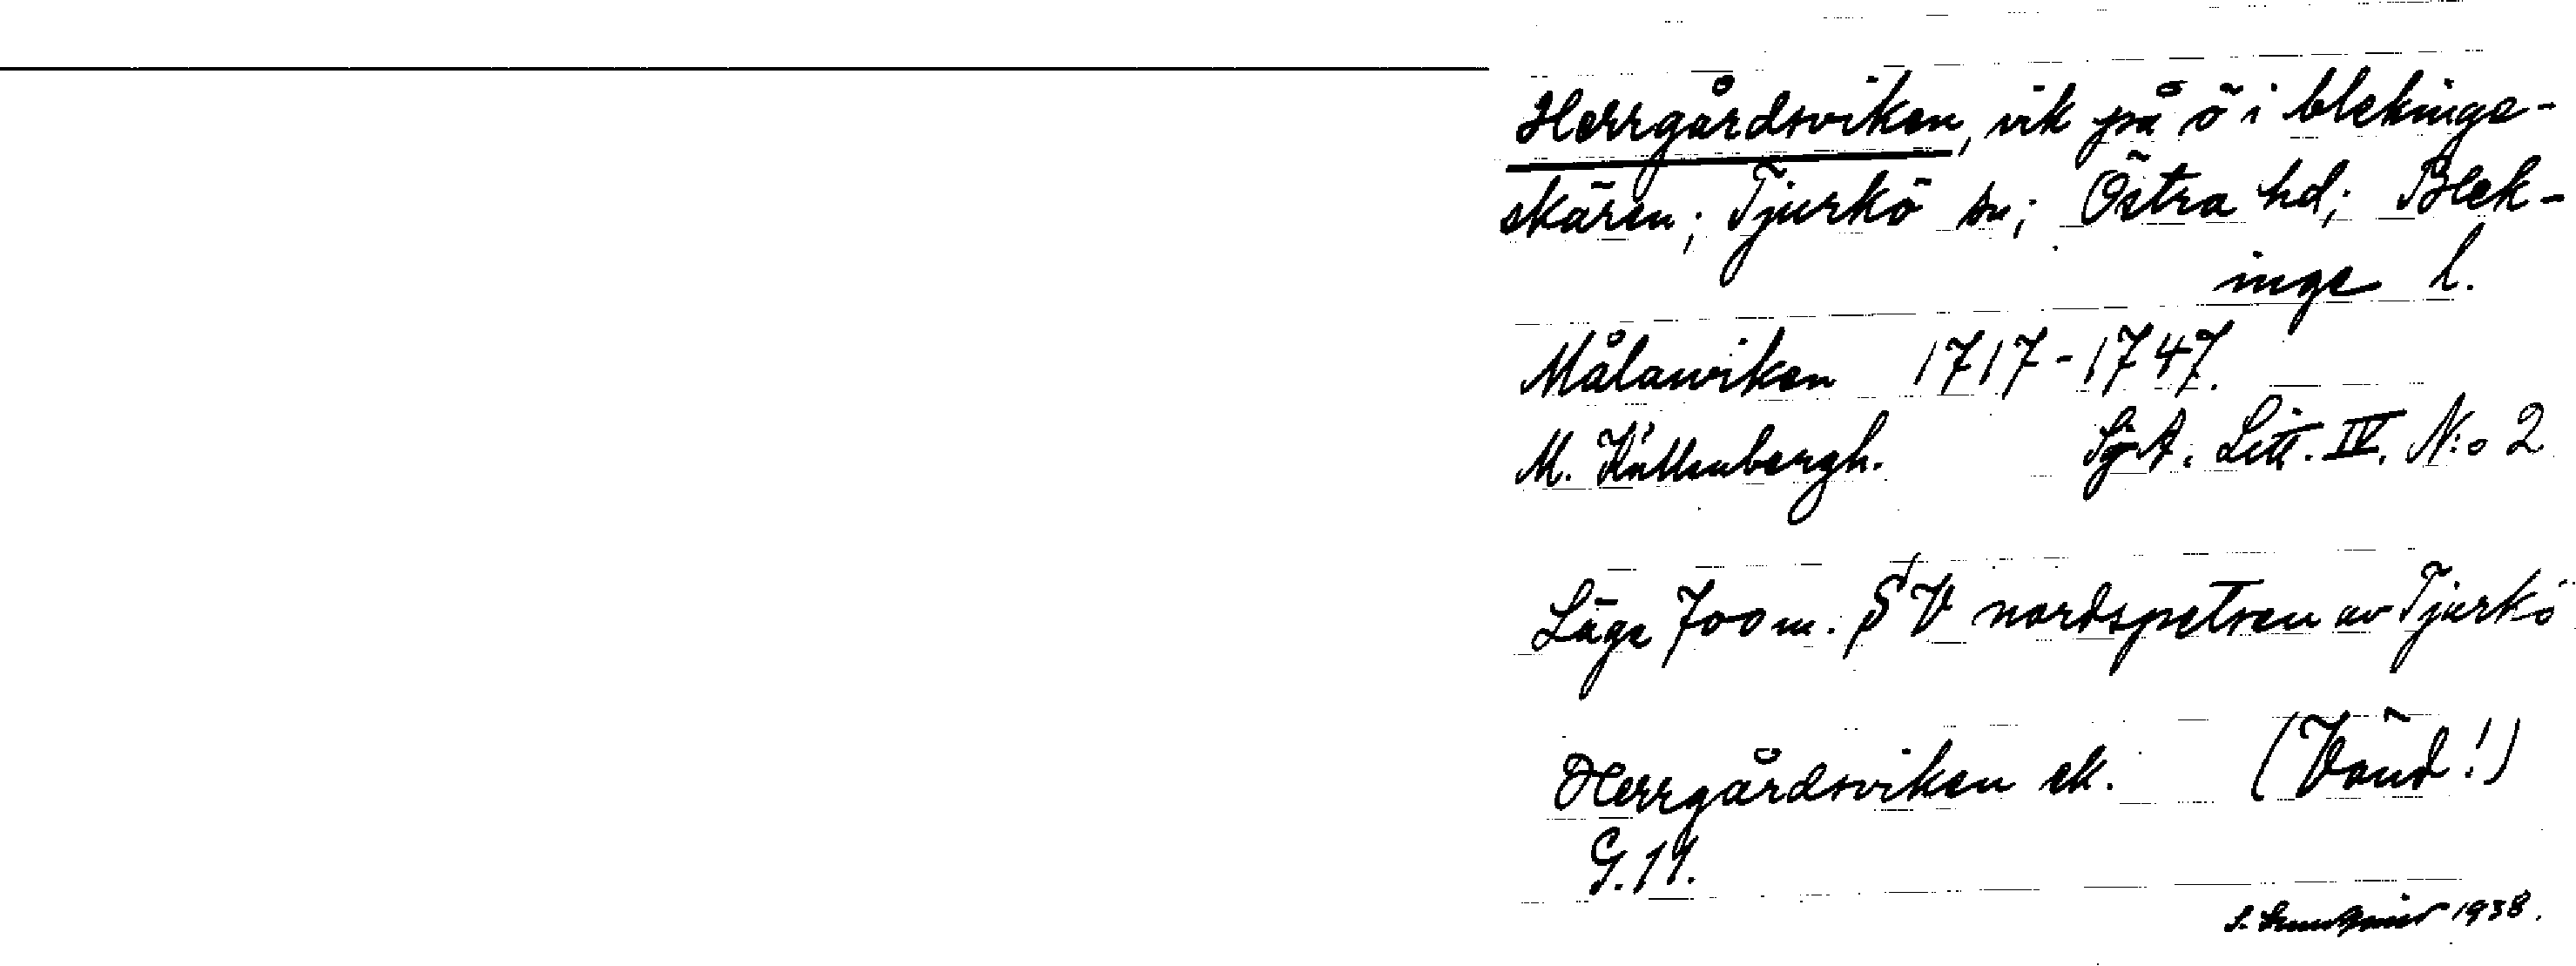 Herrgårdsviken, vik på ö i blekinge-
skären; Tjurkö sn; Östra hd; Blek-
inge l.
Målawiken 1717-1747.
M. Källenbergh. SjA. Litt. IV. N:o 2
Läge 700 m. SV nordspetsen av Tjurkö
Herrgårdsviken ek. (Vänd!)
G.11.
S. 1938.